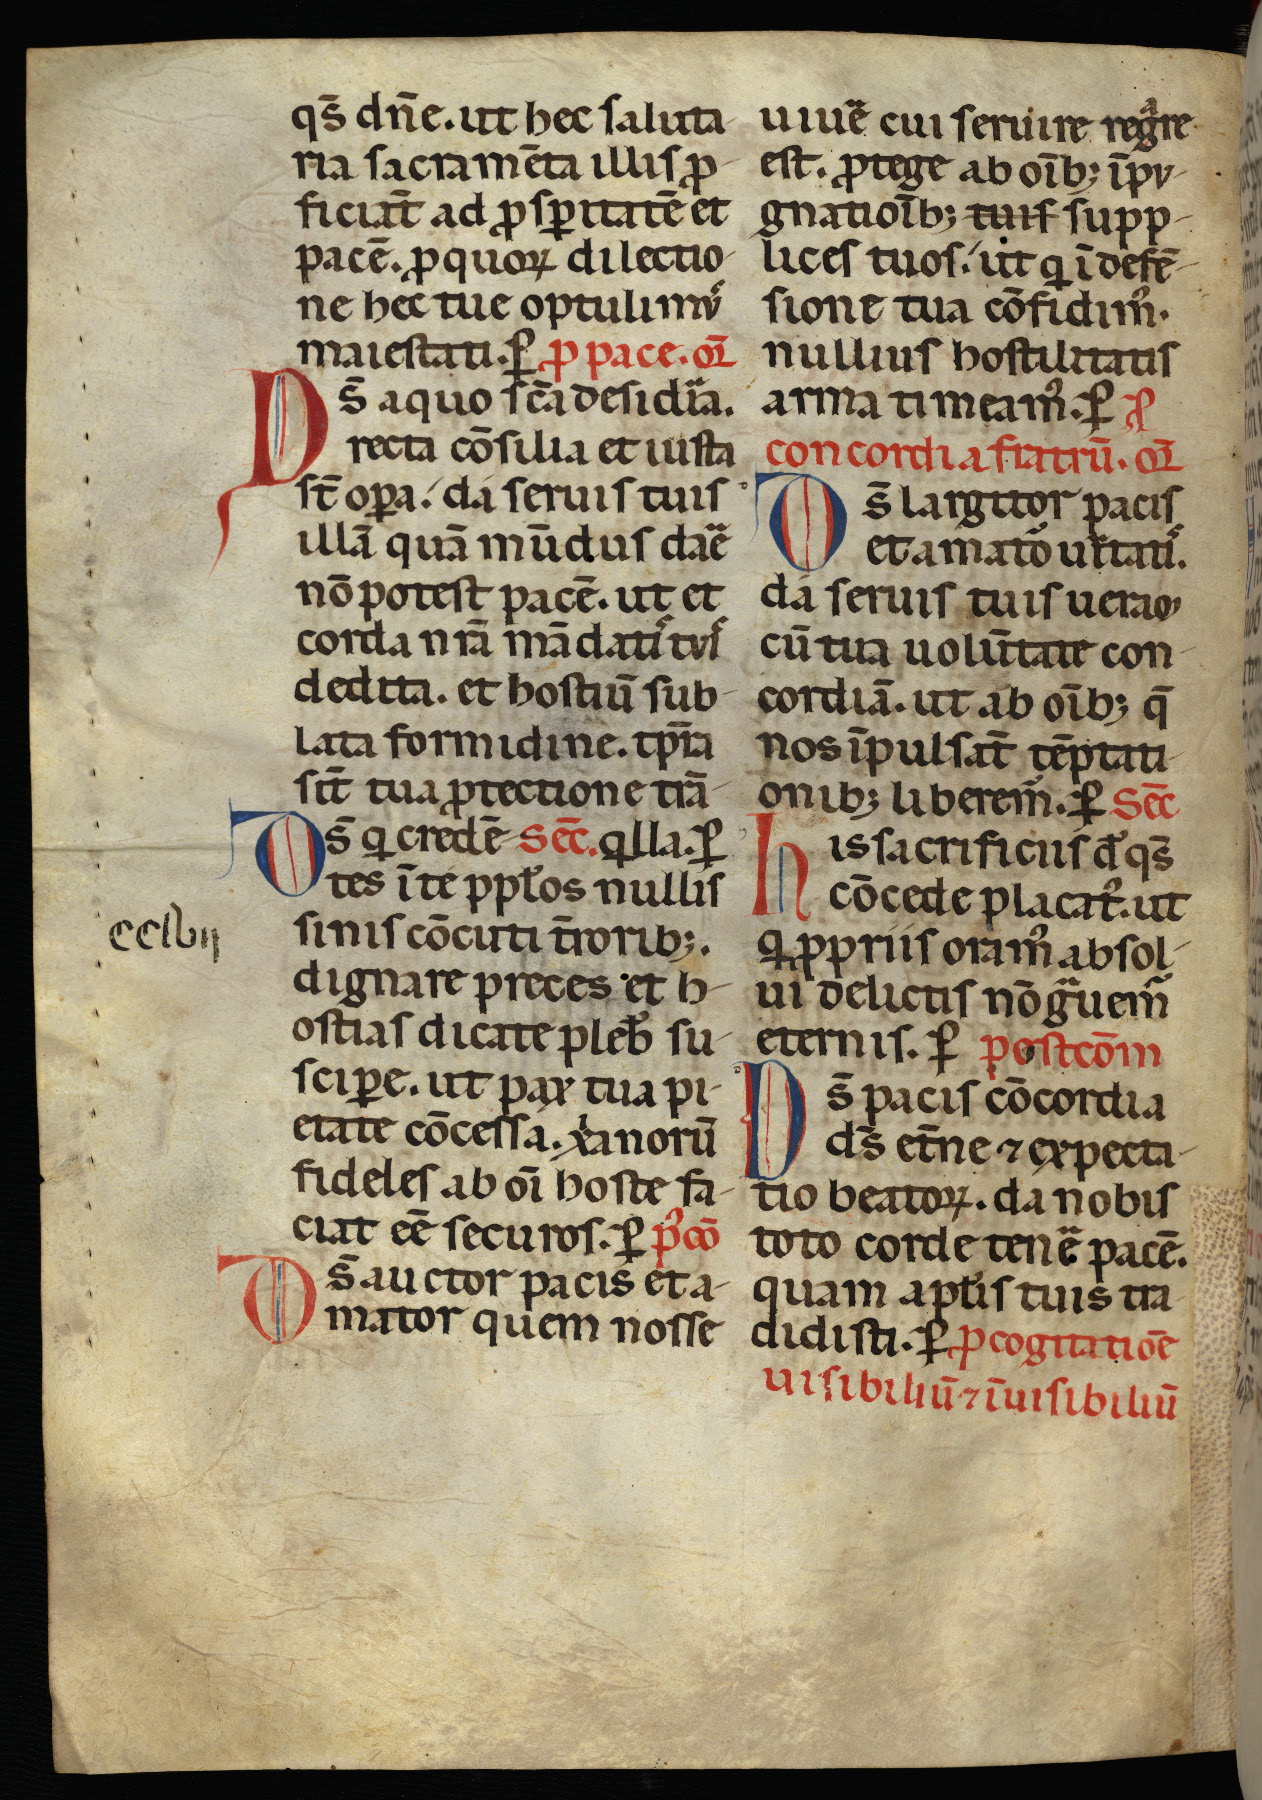 qs̄ dn̄e. ut hec saluta-
ria sacram̄ta illis ꝓ-
ficiāt ad ꝓsꝑitatē et
pacē. ꝓ quoꝝ dilectio-
ne hec tue optulimꝰ
maiestati. ꝑ ꝓ pace. oꝛ̄
Ds̄ a quo sc̄a desidīa.
recta cōsilia et iusta
st̄ oꝑa. da seruis tuis
illā quā mūdus dar̄e
nō potest pacē. ut et
corda nr̄a mādatis tuis
dedita. et hostiū sub-
lata formidine. tꝑr̄a
sit̄ tua ꝓtectione trā-
Ds̄ q̇ credē- Sec̄. q̇lla. ꝑ
tes ī te ppl̄os nullis
sinis cōcuti tr̄orib;.
dignare preces et h-
ostias dicate pleb̄ su-
scipe. ut pax tua pi-
etate cōcessa. xāanorū
fideles ab oī hoste fa-
ciat eē securos. ꝑ p̾cō
Ds̄ auctor pacis et a-
mator quem nosse
cclvii
uiuē cui seruire regͣre
est. ꝓtege ab oīb; īpu-
gnatioīb; tuis supp-
lices tuos. ut q̇ ī defē-
sione tua cōfidimꝰ.
nullius hostilitatis
arma timeamꝰ. ꝑ ꝓ
concordia fratrū. oꝛ̄
Ds̄ largitor pacis
et amator uͥtatis.
da seruis tuis ueraꝫ
cū tua volūtate con-
cordiā. ut ab oīb; q̄
nos īpulsāt tēptati-
onib; liberemꝰ. ꝑ Sec̄
his sacrificiis dn̄e qs̄
cōcede placatꝰ. ut
q̇ ꝓpriis oramꝰ absol-
ui delictis nō gͣuemꝰ
eternis. ꝑ postcōm
Ds̄ pacis cōcordia
ds̄ et̄ne ⁊ expecta-
tio beatoꝝ. da nobis
toto corde tenē pacē.
quam apl̄is tuis tra-
didisti. ꝑ ꝓ cogitatiōe
uisibiliū ⁊ īuisibiliū